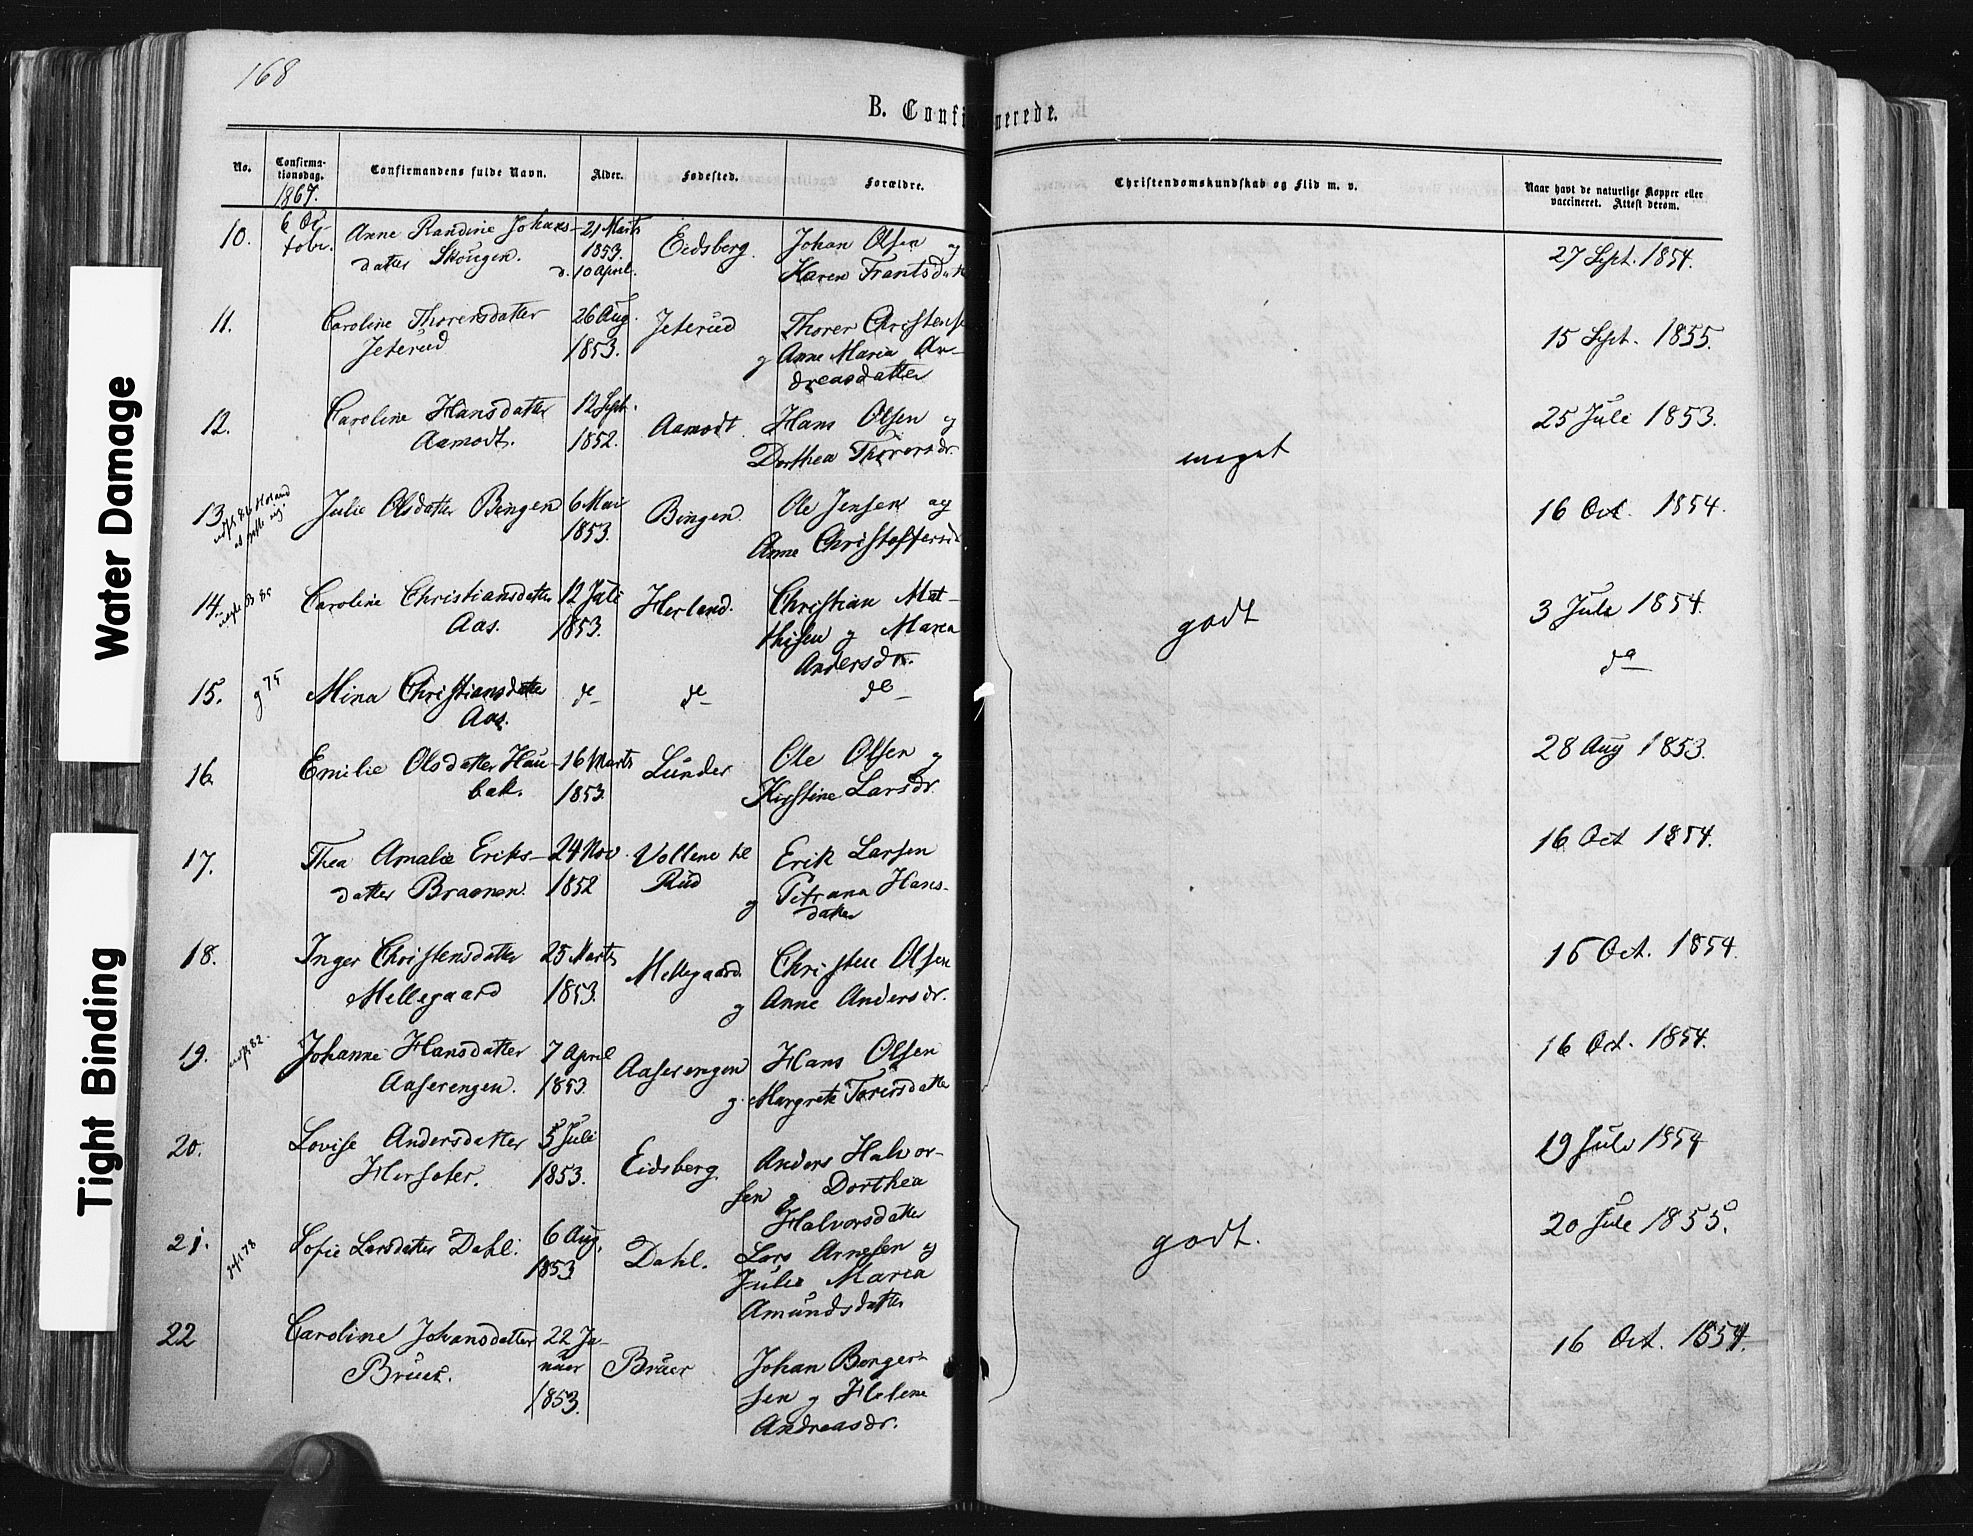 168
B. Confirmerede.
No.
Confirma-
tionsdag.
1867.
Confirmandens fulde Navn.
Alder.
Fødested.
Forældre.
Christendomskundskab og Flid m. v.
Naar havt de naturlige Kopper eller
vaccineret. Attest derom.
10.
6 Oc-
tobr.
Anne Randine Johans-
datter Skougen.
21 Marts
1853.
d. 10 April.
Eidsberg.
Johan Olsen og
Karen Frantsdatt
27 Sept. 1854.
11.
Caroline Thorersdatter
Jeterud
26 Aug.
1853.
Jeterud
Thorer Christense
g Anne Maria An-
dreasdatter
15 Sept. 1855.
12.
Caroline Hansdatter
Aamodt.
12 Sept.
1852.
Aamodt
Hans Olsen og
Dorthea Thorersdr.
meget
25 Juli 1853.
13.
Julie Olsdatter Bingen
6 Mai
1853.
Bingen.
Ole Jensen og
Anne Christoffersd
16 Oct. 1854.
14.
Caroline Christiansdatter
Aas.
12 Juli
1853.
Herland.
Christian Mat-
thisen g Maria
Andersdr.
godt
3 Juli 1854.
15.
g 75
Mina Christiansdatter
Aas.
do
do
do
do
16.
Emilie Olsdatter Hau-
bak.
16 Marts
1853.
Lunder
Ole Olsen g
Kirstine Larsdr.
28 Aug 1853.
17.
Thea Amalie Eriks-
datter Braanen.
24 Nov
1852
Vollene til
Rud
Erik Larsen
g Petrana Hans-
datter
16 Oct 1854.
18.
Inger Christensdatter
Mellegaard
25 Marts
1853.
Mellegaard.
Christen Olsen
g Anne Andersdr.
16 Oct. 1854.
19.
udfl 82.
Johanne Hansdatter
Aaserengen.
7 April
1853.
Aaserengen
Hans Olsen
g. Margrete Torersdatter
16 Oct. 1854.
20.
Lovise Andersdatter
Hersoter.
5 Juli
1853.
Eidsberg
Anders Halvor-
sen g Dorthea
Halvorsdatter
19 Juli 1854
21.
Sofie Larsdatter Dahl.
6 Aug.
1853
Dahl.
Lars Arnesen g
Julie Maria
Amundsdatter
godt.
20 Juli 1855.
22
Caroline Johansdatter
Bruer.
22 Ja-
nuar
1853.
Bruer
Johan Borger-
sen g Helene
Andreasdr.
16 Oct. 1854.
Water Damage
Tight Binding